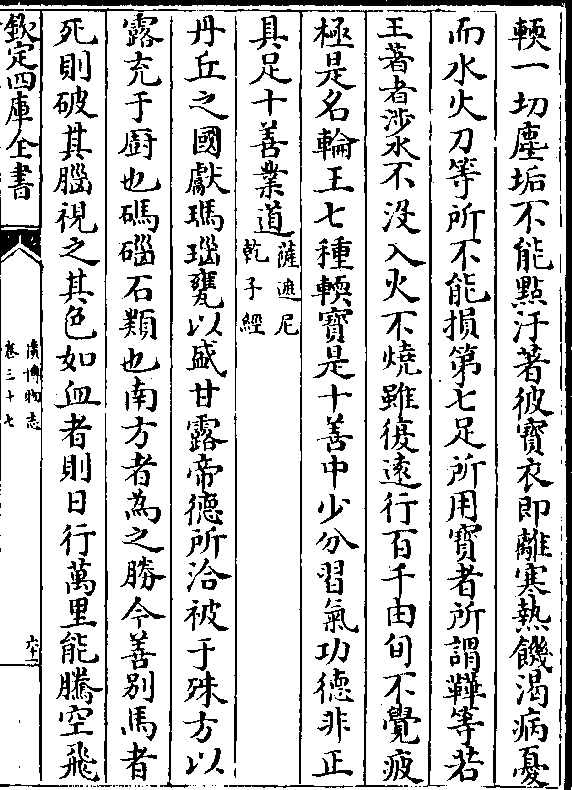 輭一切塵垢不能點汙著彼寳衣即離寒熱饑渴病憂
而水火刀等所不能損第七足所用寳者所謂鞾等若
王著者涉水不没入火不燒雖復逺行百千由旬不覺疲
極是名輪王七種輭寳是十善中少分習氣功德非正
具足十善業道薩遮尼
乾子經
丹丘之國獻瑪瑙甕以盛甘露帝德所洽被于殊方以
露充于厨也碼碯石類也南方者為之勝今善别馬者
死則破其腦視之其色如血者則日行萬里能騰空飛
欽定四庫全書
廣博物志
卷三十七
六十二